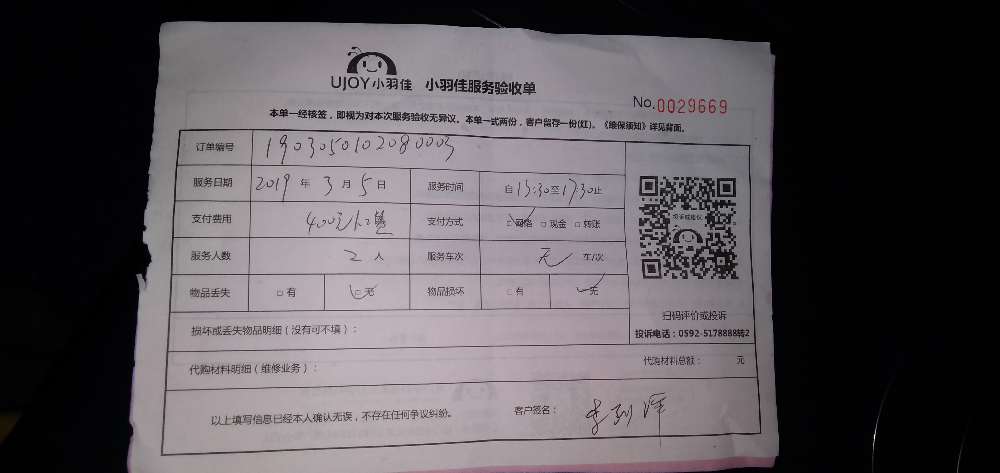 UJOY小羽佳 小羽佳服务验收单
No.0029669
本单一经核签，即视为对本次服务验收无异议。本单一式两份，客户留存一份(红)。《维保须知》详见背面。
订单编号 1903050102080003
服务日期 2019 年 3 月 5 日 服务时间 自 13:30 至 17:30 止
支付费用 400元 支付方式 □ 网络 □ 现金 □ 转账
服务人数 2 人 服务车次 无 车/次
物品丢失 □ 有 □ 无 物品损坏 □ 有 □ 无
投诉或建议
扫码评价或投诉
投诉电话：0592-5178888转2
损坏或丢失物品明细（没有可不填）：
代购材料明细（维修业务）： 代购材料总额： 元
以上填写信息已经本人确认无误，不存在任何争议纠纷。 客户签名：